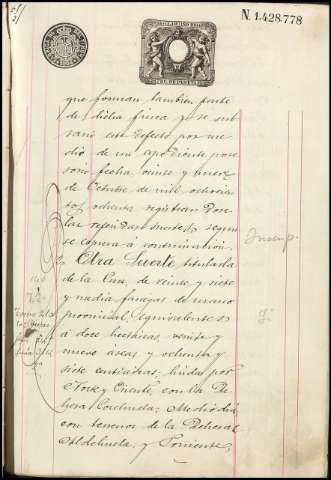 N. 1.428.778
que forman tambien parte
de dicha finca y se sub
sanó este defecto por me
dio de un espediente pose
sorio fecha veinte y nueve
de Octubre de mil ochocien
tos ochenta, registran dose
las referidas suertes, segun
se espresa á continuacion.
Otra Suerte, titulada
de la Cruz, de veinte y siete
y media fanegas de marco
provincial, equivalentes
á doce hectáreas, veinte y
nueve áreas y ochenta y
siete centiáreas: linda por
Norte y Oriente, con la De
hesa Corchuela; Mediodia
con terrenos de la Dehesa
Aldehuela, y Poniente,